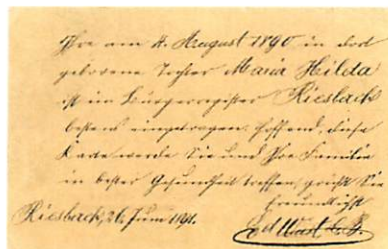 Ihre am 4. August 1890 in dort
geborene Tochter Maria Hilda
ist im Bürgerregister Riesbach
bestens eingetragen. Hoffend, diese
Karte werde Sie und Ihre Familie
in bester Gesundheit treffen, grüßt Sie
freundlichst
Riesbach, 26. Juni 1891.